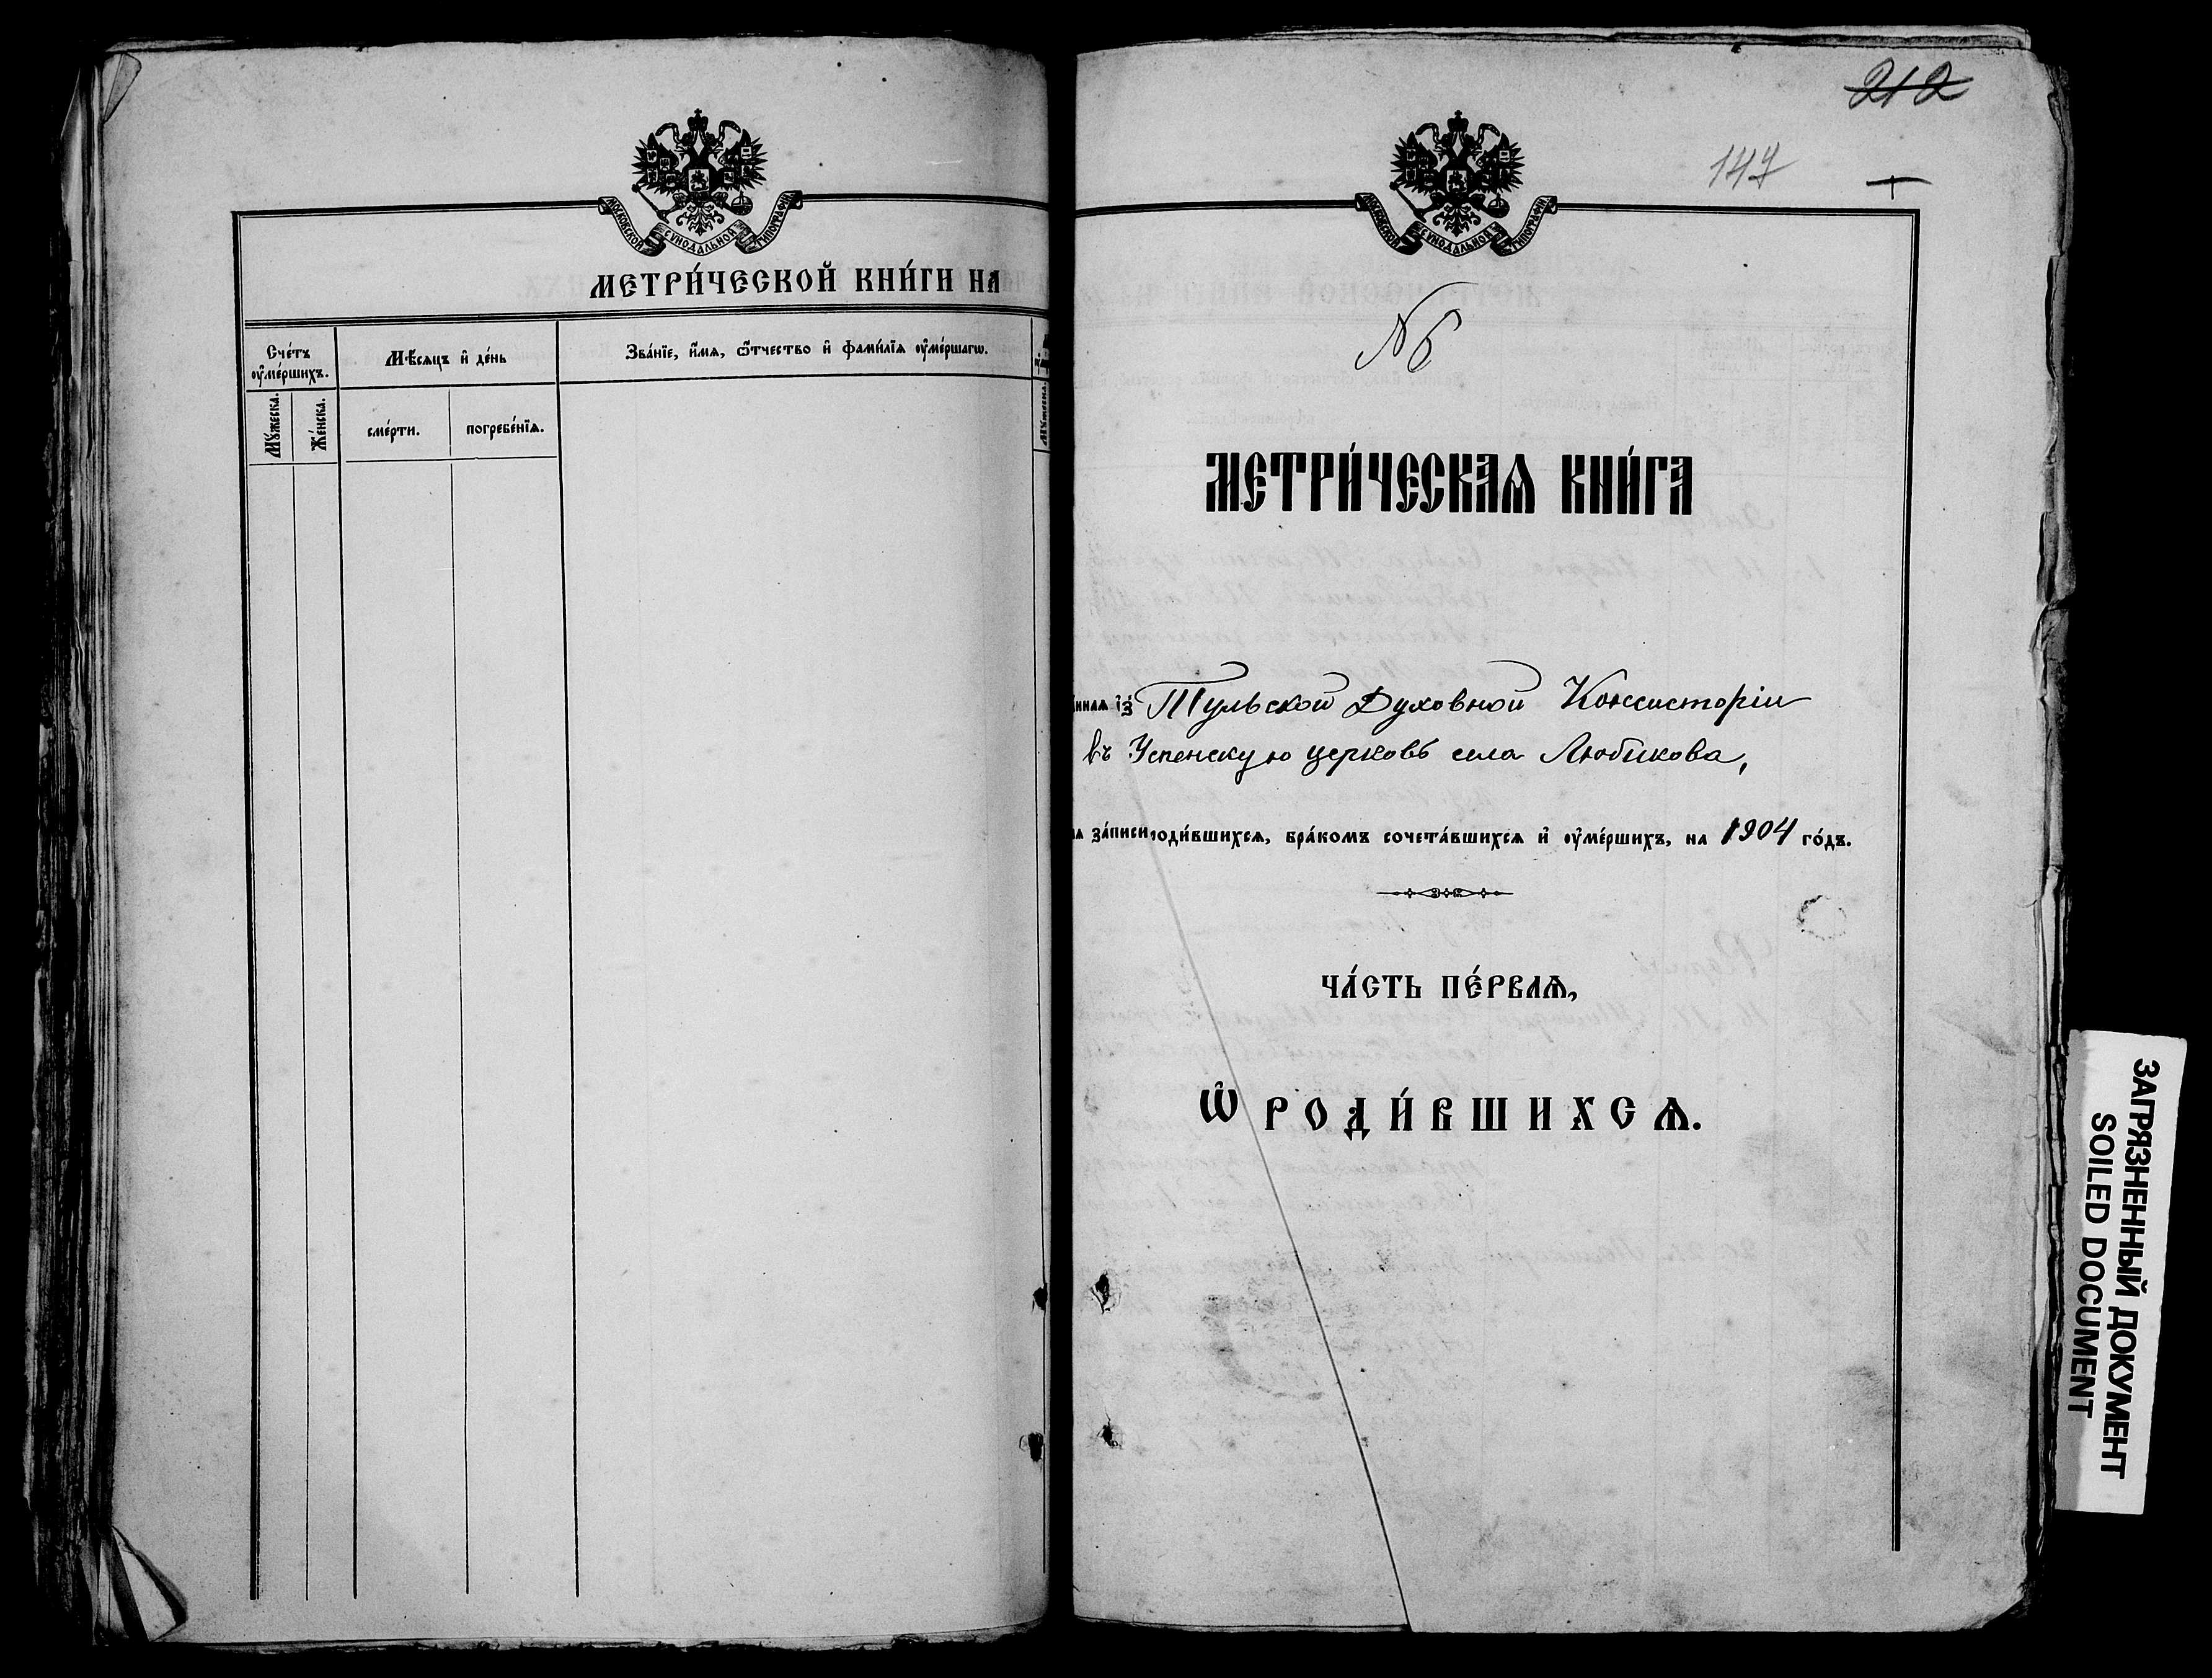 МОСКОВСКОЙ СѴНОДАЛЬНОЙ ТИПОГРАФІИ
МЕТРИ́ЧЕСКОЙ КНИ́ГИ НА
Сче́тъ ᲂу҆ме́ршихъ.
Мѣ́сяцъ и҆ де́нь
Зва́нїе, и҆́мѧ, ѻ҆́тчество и҆ фамилїѧ ᲂу҆ме́ршагѡ.
Мꙋ́жеска.
Же́нска.
сме́рти.
погребе́нїѧ.
212
147
МОСКОВСКОЙ СѴНОДАЛЬНОЙ ТИПОГРАФІИ
№
МЕТРИ́ЧЕСКАѦ КНИ́ГА
ннаѧ и҆з̾ Тульской Духовной Консисторіи
въ Успенскую церковь села Любикова,
за́писи роди́вшихсѧ, бра́комъ сочета́вшихсѧ и҆ ᲂу҆ме́ршихъ, на 1904 го́дъ.
ЧА́СТЬ ПЕ́РВАѦ,
Ѽ РОДИ́ВШИХСѦ.
ЗАГРЯЗНЕННЫЙ ДОКУМЕНТ
SOILED DOCUMENT